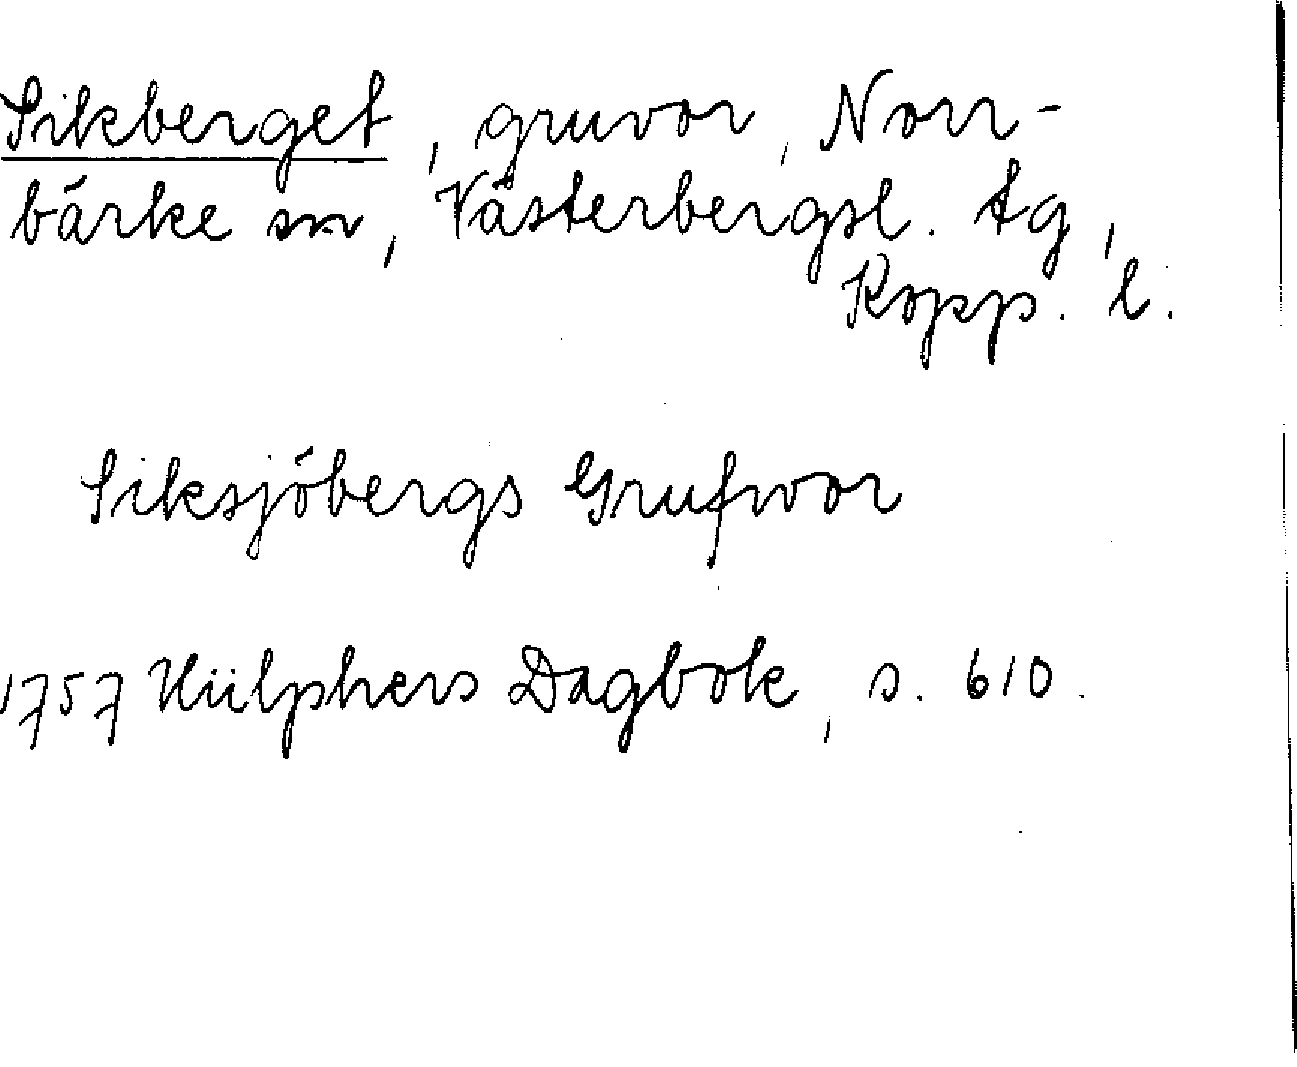 Sikberget, gruvor, Norr-
bärke sn, Västerbergsl. tg,
Kopp. l.
Siksjöbergs Grufwor
1757 Hülphers Dagbok, s. 610.